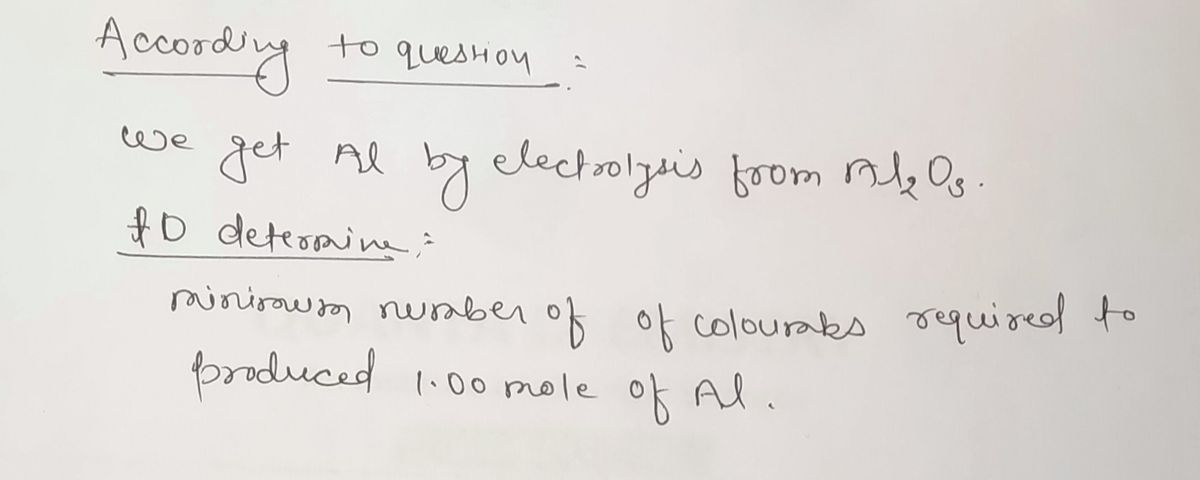 According to question :
we get Al by electrolysis from Al₂O₃.
to determine :
minimum number of of coloumbs required to
produced 1.00 mole of Al.